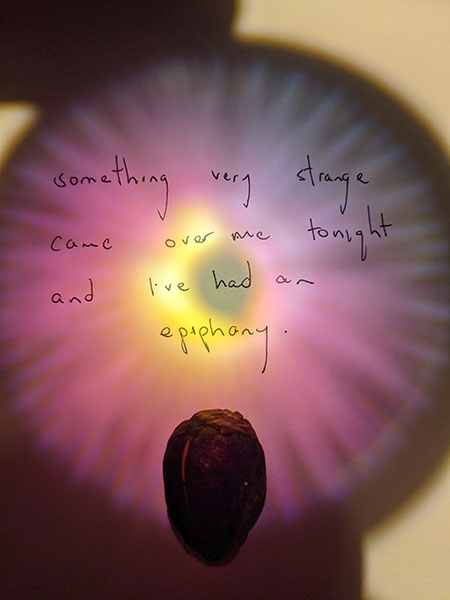 something very strange
came over me tonight
and I've had an
epiphany.